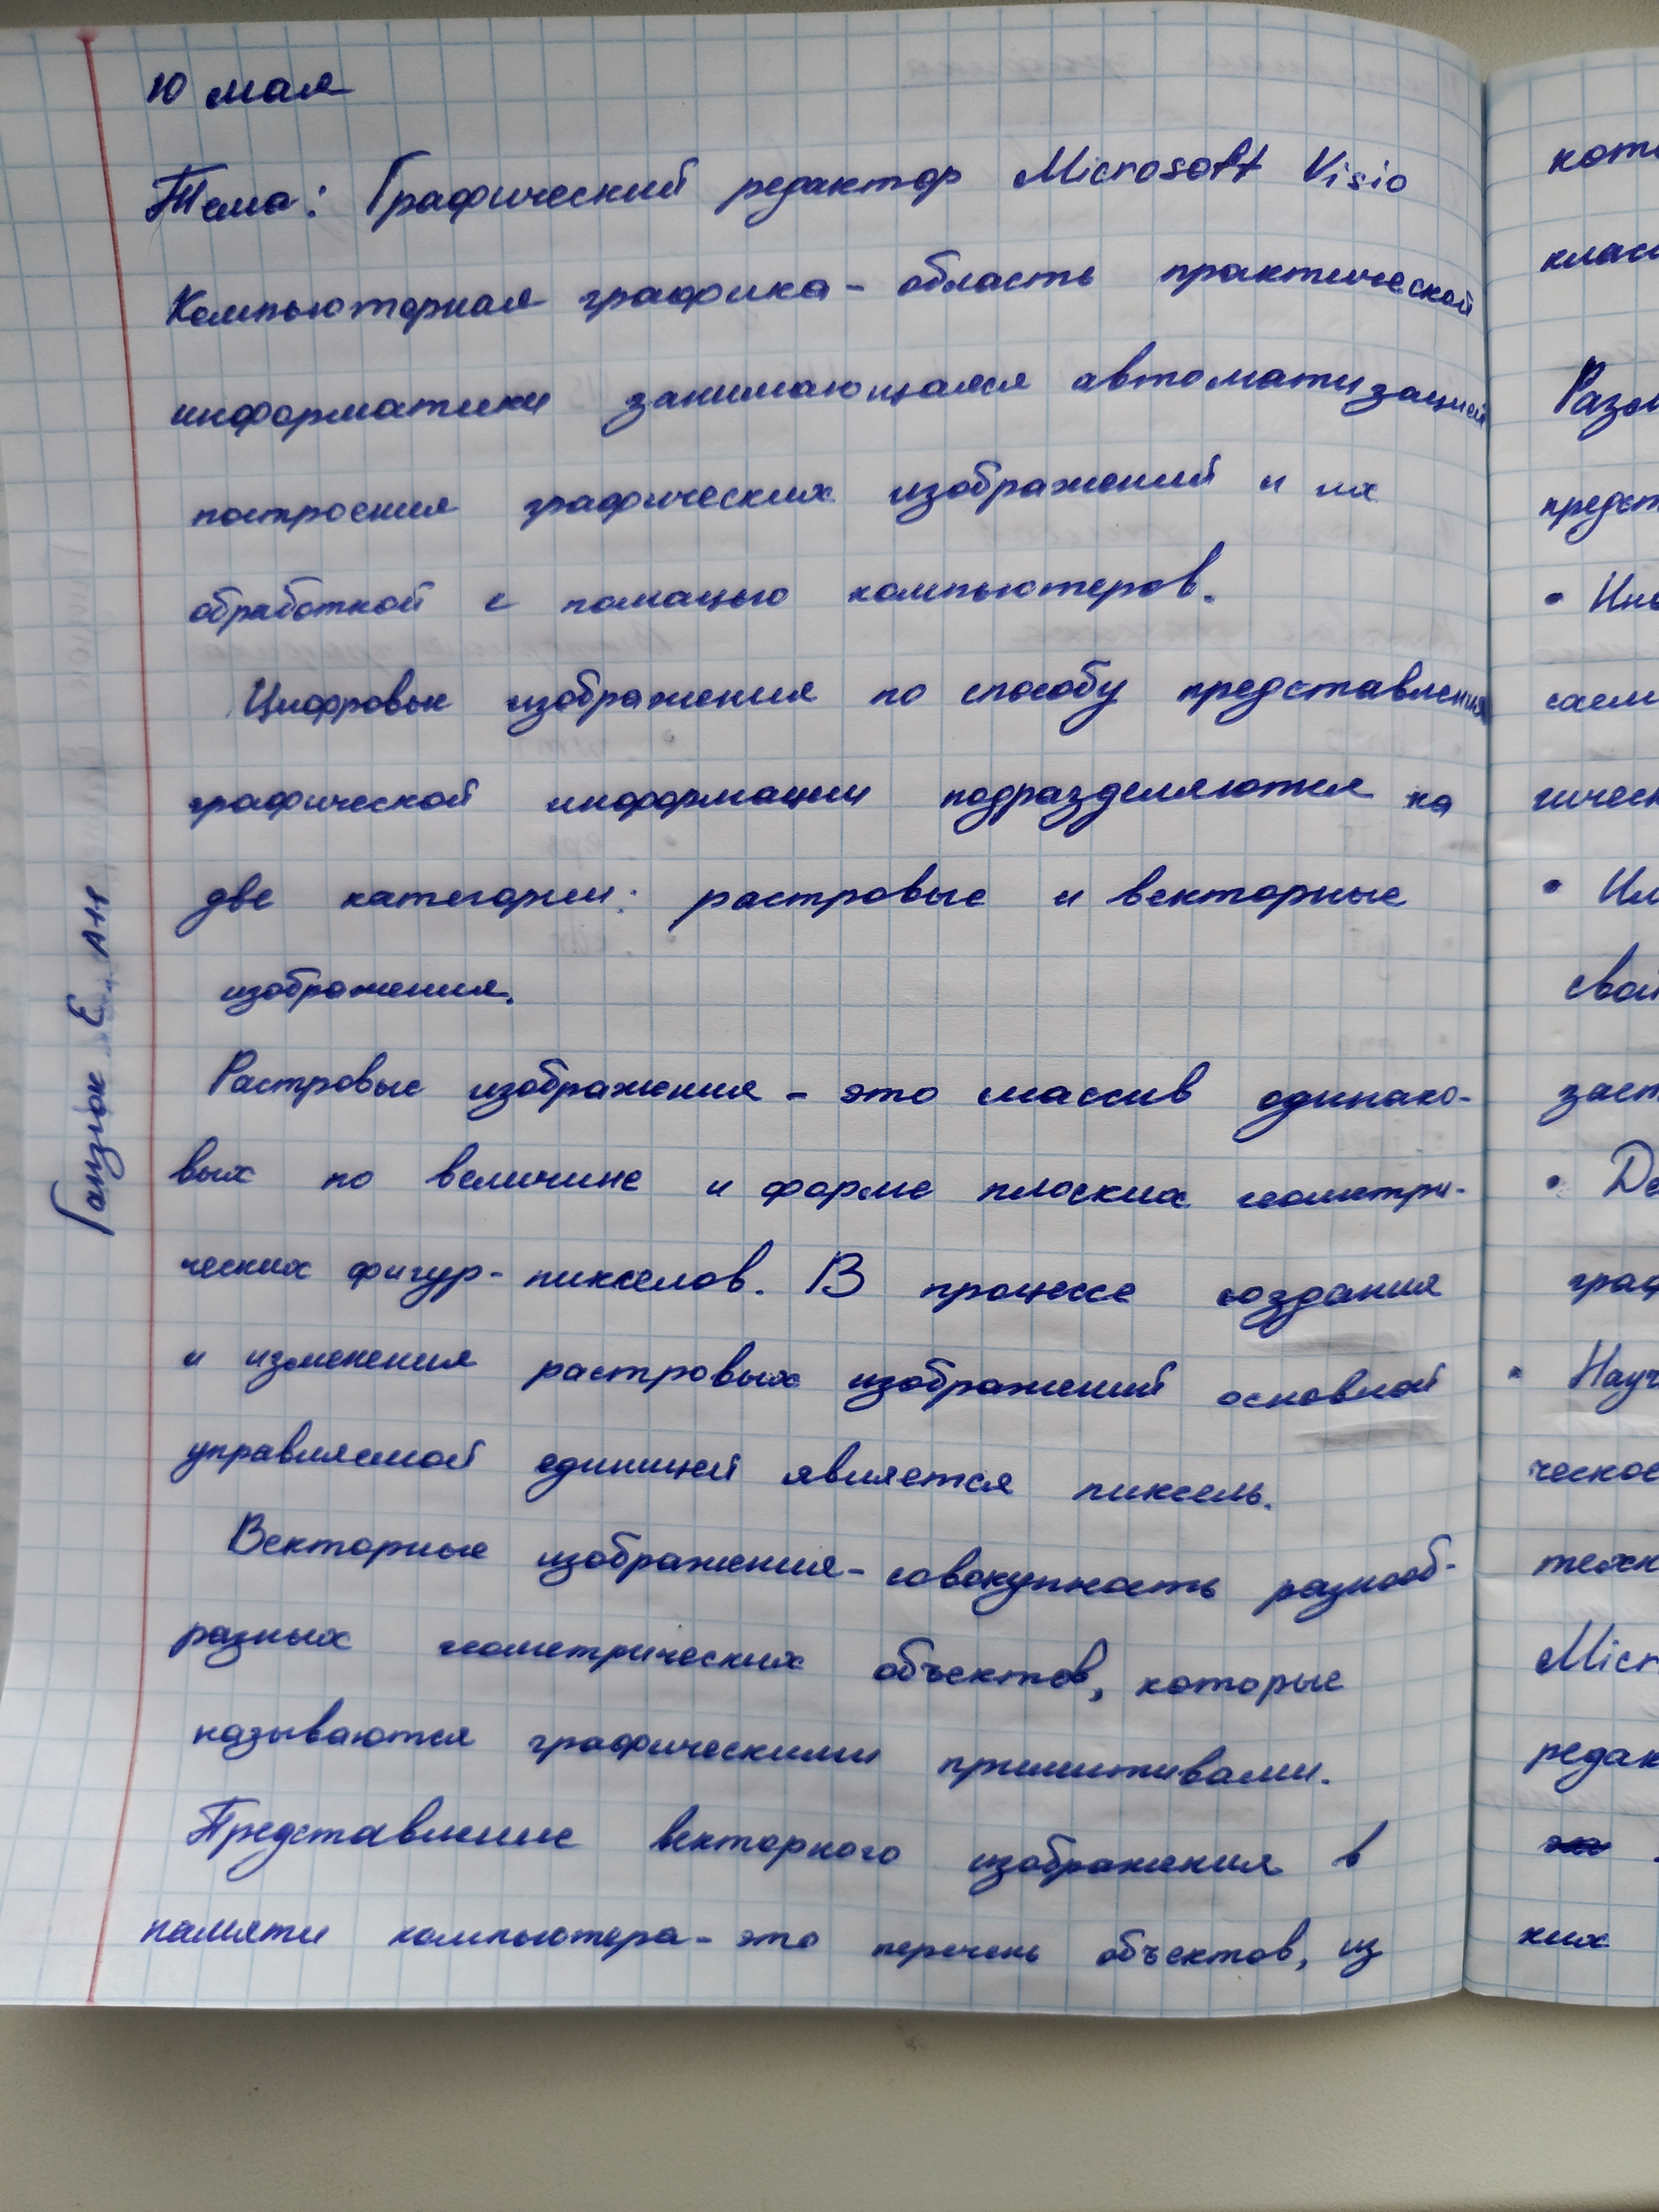 10 мая
Тема: Графический редактор Microsoft Visio
Компьютерная графика - область практической
информатики занимающаяся автоматизацией
построения графических изображений и их
обработкой с помощью компьютеров.
Цифровые изображения по способу представления
графической информации подразделяются на
две категории: растровые и векторные
изображения.
Растровые изображения - это массив одинако-
вых по величине и форме плоских геометри-
ческих фигур - пикселов. В процессе создания
и изменения растровых изображений основной
управляемой единицей является пиксель.
Векторные изображения - совокупность разнооб-
разных геометрических объектов, которые
называются графическими примитивами.
Представление векторного изображения в
памяти компьютера - это перечень объектов, из
Ганзюк Е. А-11
кото
клас
Разл
предст
гическ
• Ил
свой
заст
• Де
граф
• Науч
ческое
техн
Micr
редак
ких